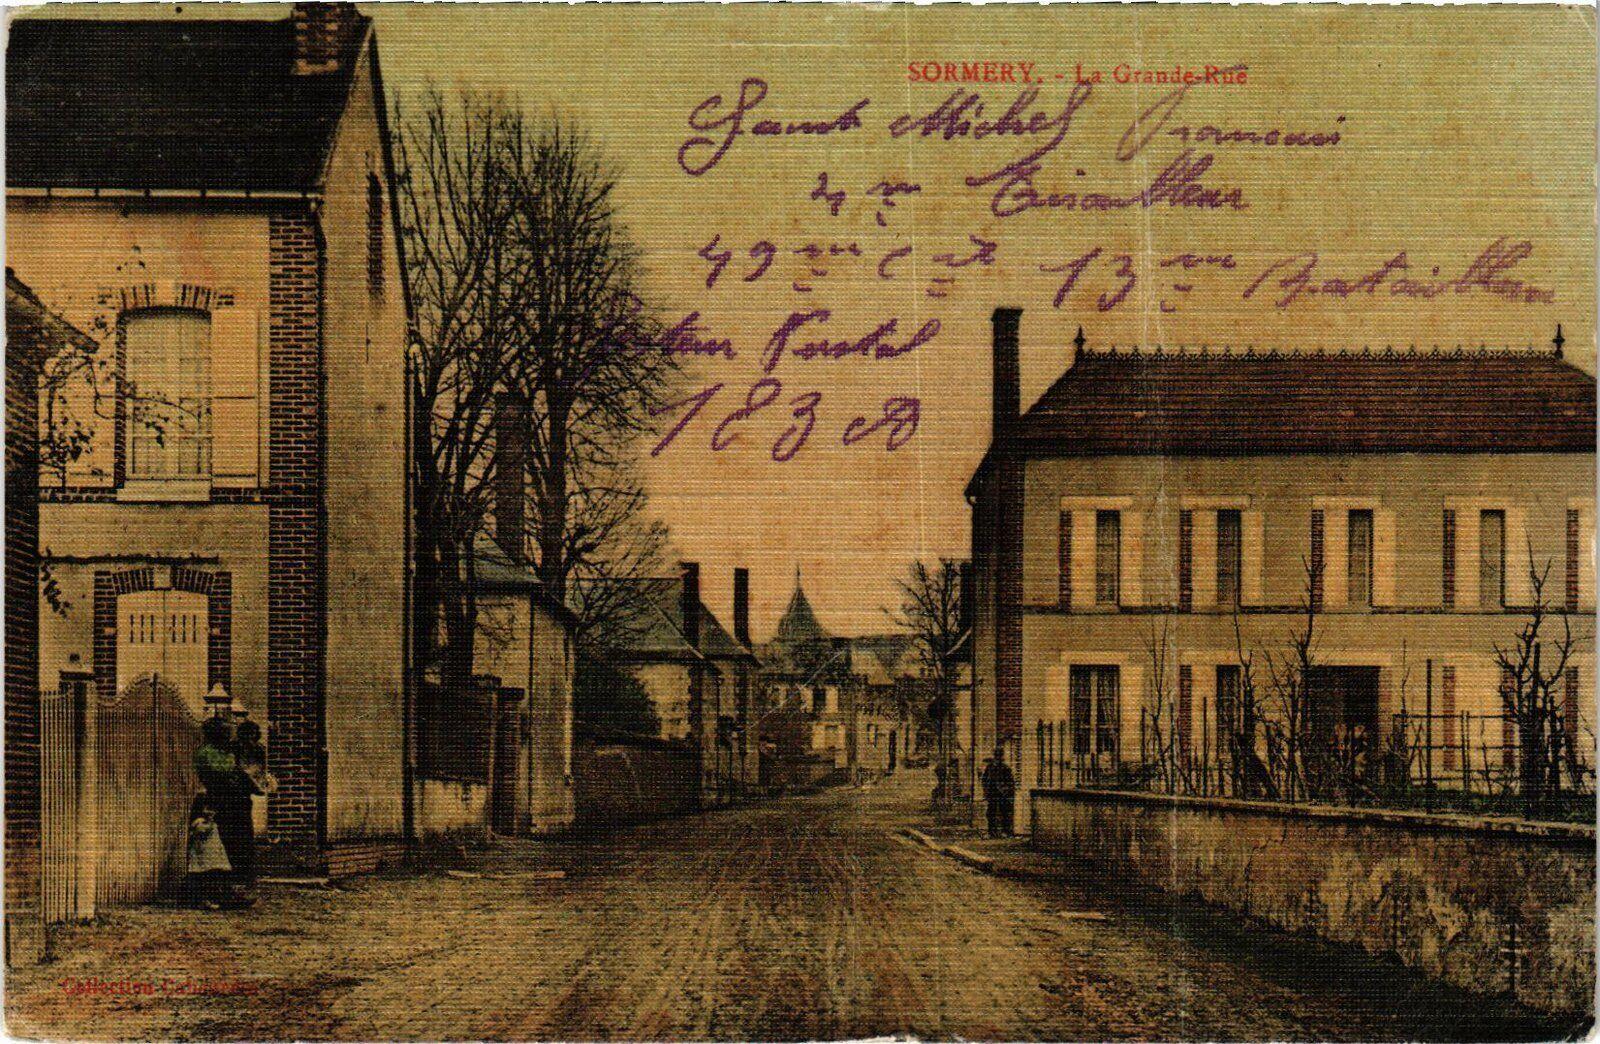 SORMERY. - La Grande-Rue
Saint Michel
4 me Tirailleur
49 me Cnie 13 me Bataillon
Secteur Postal
183
Collection